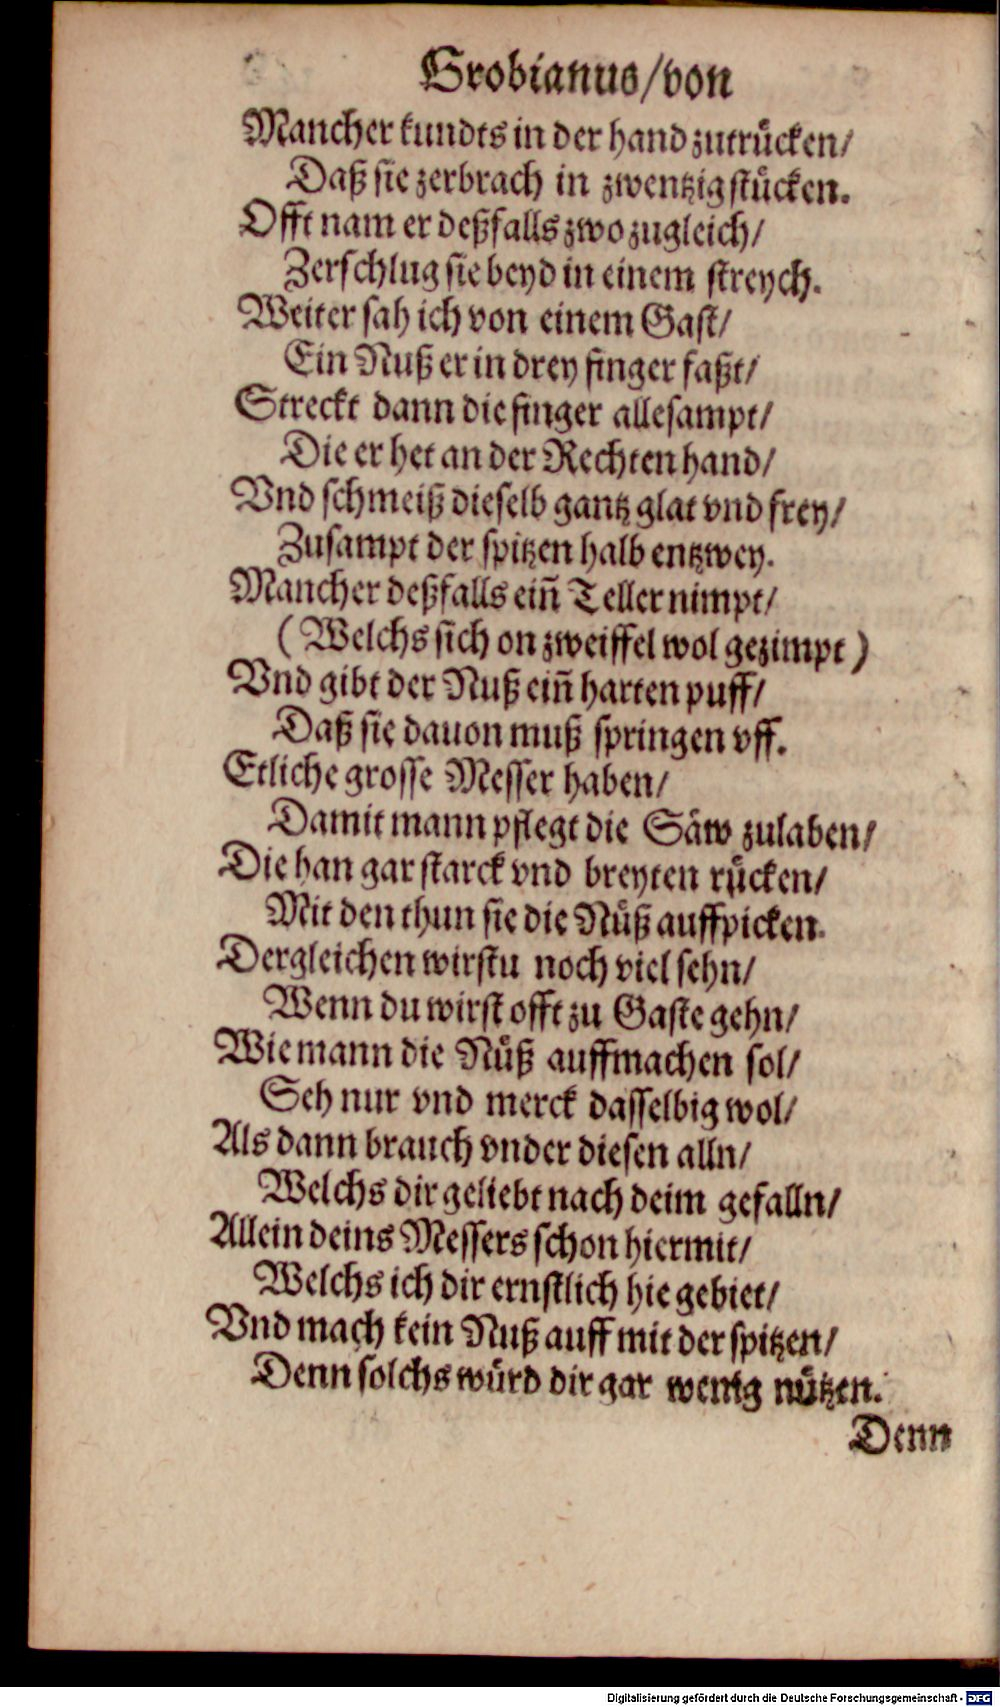 Grobianus/von
Mancher kundts in der hand zutruͤcken/
Daß sie zerbrach in zwentzig stuͤcken.
Offt nam er deßfalls zwo zugleich/
Zerschlug sie beyd in einem streych.
Weiter sah ich von einem Gast/
Ein Nuß er in drey finger faßt/
Streckt dann die finger allesampt/
Die er het an der Rechten hand/
Vnd schmeiß dieselb gantz glat vnd frey/
Zusampt der spitzen halb entzwey.
Mancher deßfalls ein̄ Teller nimpt/
(Welchs sich on zweiffel wol gezimpt)
Vnd gibt der Nuß ein̄ harten puff/
Daß sie dauon muß springen vff.
Etliche grosse Messer haben/
Damit mann pflegt die Saͤw zulaben/
Die han gar starck vnd breyten ruͤcken/
Mit den thun sie die Nuͤß auffpicken.
Dergleichen wirstu noch viel sehn/
Wenn du wirst offt zu Gaste gehn/
Wie mann die Nuͤß auffmachen sol/
Seh nur vnd merck dasselbig wol/
Als dann brauch vnder diesen alln/
Welchs dir geliebt nach deim gefalln/
Allein deins Messers schon hiermit/
Welchs ich dir ernstlich hie gebiet/
Vnd mach kein Nuß auff mit der spitzen/
Denn solchs wuͤrd dir gar wenig nuͤtzen.
Denn
Digitalisierung gefördert durch die Deutsche Forschungsgemeinschaft - DFG